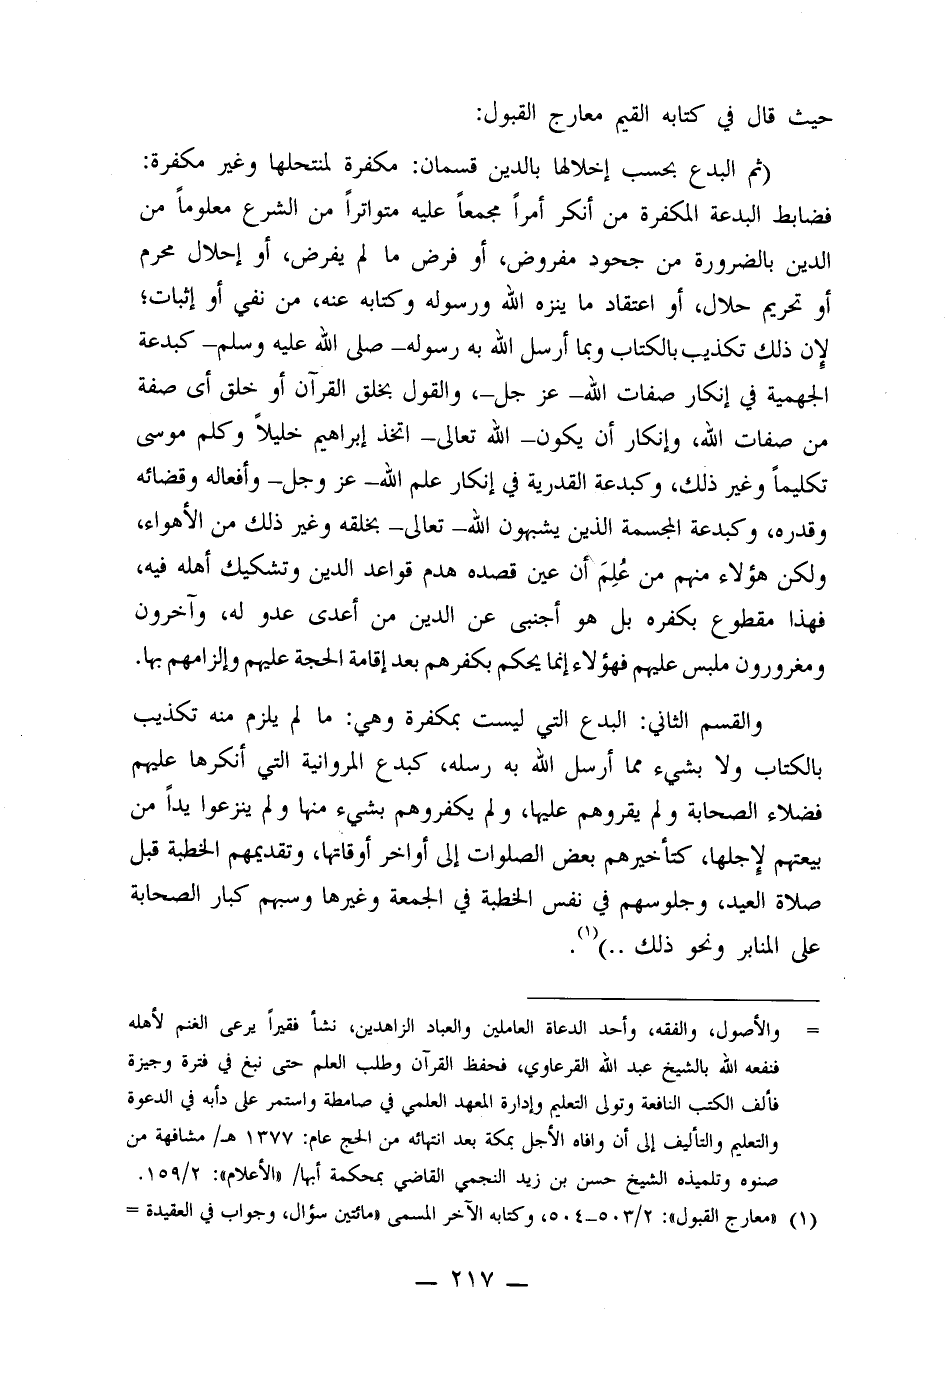 حيث قال في كتابه القيم معارج القبول:
(ثم البدع بحسب إخلالها بالدين قسمان: مكفرة لمنتحلها وغير مكفرة:
فضابط البدعة المكفرة من أنكر أمراً مجمعاً عليه متواتراً من الشرع معلوماً من
الدين بالضرورة من جحود مفروض، أو فرض ما لم يفرض، أو إحلال محرم
أو تحريم حلال، أو اعتقاد ما ينزه الله ورسوله وكتابه عنه، من نفي أو إثبات؛
لإن ذلك تكذيب بالكتاب وبما أرسل الله به رسوله– صلى الله عليه وسلم– كبدعة
الجهمية في إنكار صفات الله– عز جل–، والقول بخلق القرآن أو خلق أى صفة
من صفات الله، وإنكار أن يكون– الله تعالى– اتخذ إبراهيم خليلاً وكلم موسى
تكليماً وغير ذلك، وكبدعة القدرية في إنكار علم الله– عز وجل– وأفعاله وقضائه
وقدره، وكبدعة المجسمة الذين يشبهون الله– تعالى– بخلقه وغير ذلك من الأهواء،
ولكن هؤلاء منهم من عُلِمَ أن عين قصده هدم قواعد الدين وتشكيك أهله فيه،
فهذا مقطوع بكفره بل هو أجنبى عن الدين من أعدى عدو له، وآخرون
ومغرورون ملبس عليهم فهؤلاء إنما يحكم بكفرهم بعد إقامة الحجة عليهم وإلزامهم بها.
والقسم الثاني: البدع التي ليست بمكفرة وهي: ما لم يلزم منه تكذيب
بالكتاب ولا بشيء مما أرسل الله به رسله، كبدع المروانية التي أنكرها عليهم
فضلاء الصحابة ولم يقروهم عليها، ولم يكفروهم بشيء منها ولم ينزعوا يداً من
بيعتهم لإجلها، كتأخيرهم بعض الصلوات إلى أواخر أوقاتها، وتقديمهم الخطبة قبل
صلاة العيد، وجلوسهم في نفس الخطبة في الجمعة وغيرها وسبهم كبار الصحابة
على المنابر ونحو ذلك ..)(١).
= والأصول، والفقه، وأحد الدعاة العاملين والعباد الزاهدين، نشأ فقيراً يرعى الغنم لأهله
فنفعه الله بالشيخ عبد الله القرعاوي، فحفظ القرآن وطلب العلم حتى نبغ في فترة وجيزة
فألف الكتب النافعة وتولى التعليم وإدارة المعهد العلمي في صامطة واستمر على دأبه في الدعوة
والتعليم والتأليف إلى أن وافاه الأجل بمكة بعد انتهائه من الحج عام: ١٣٧٧ هـ/ مشافهة من
صنوه وتلميذه الشيخ حسن بن زيد النجمي القاضي بمحكمة أبها/ «الأعلام»: ١٥٩/٢.
(١) «معارج القبول»: ٥٠٣/٢–٥٠٤، وكتابه الآخر المسمى «مائتين سؤال، وجواب في العقيدة =
— ٢١٧ —